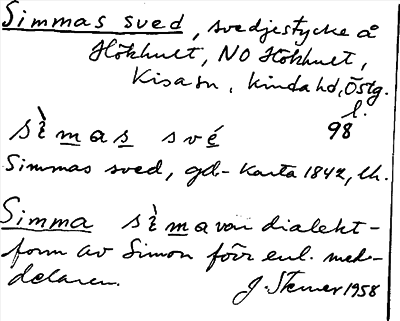 Simmas sved, svedjestycke å
Hökhult, NO Hökhult,
Kisa sn, Kinda hd, Östg.
l.
98
sìmas své
Simmas sved, gd-karta 1842, lh.
Simma sìma var dialekt-
form av Simon förr enl. med-
delaren.
J. Stemer 1958